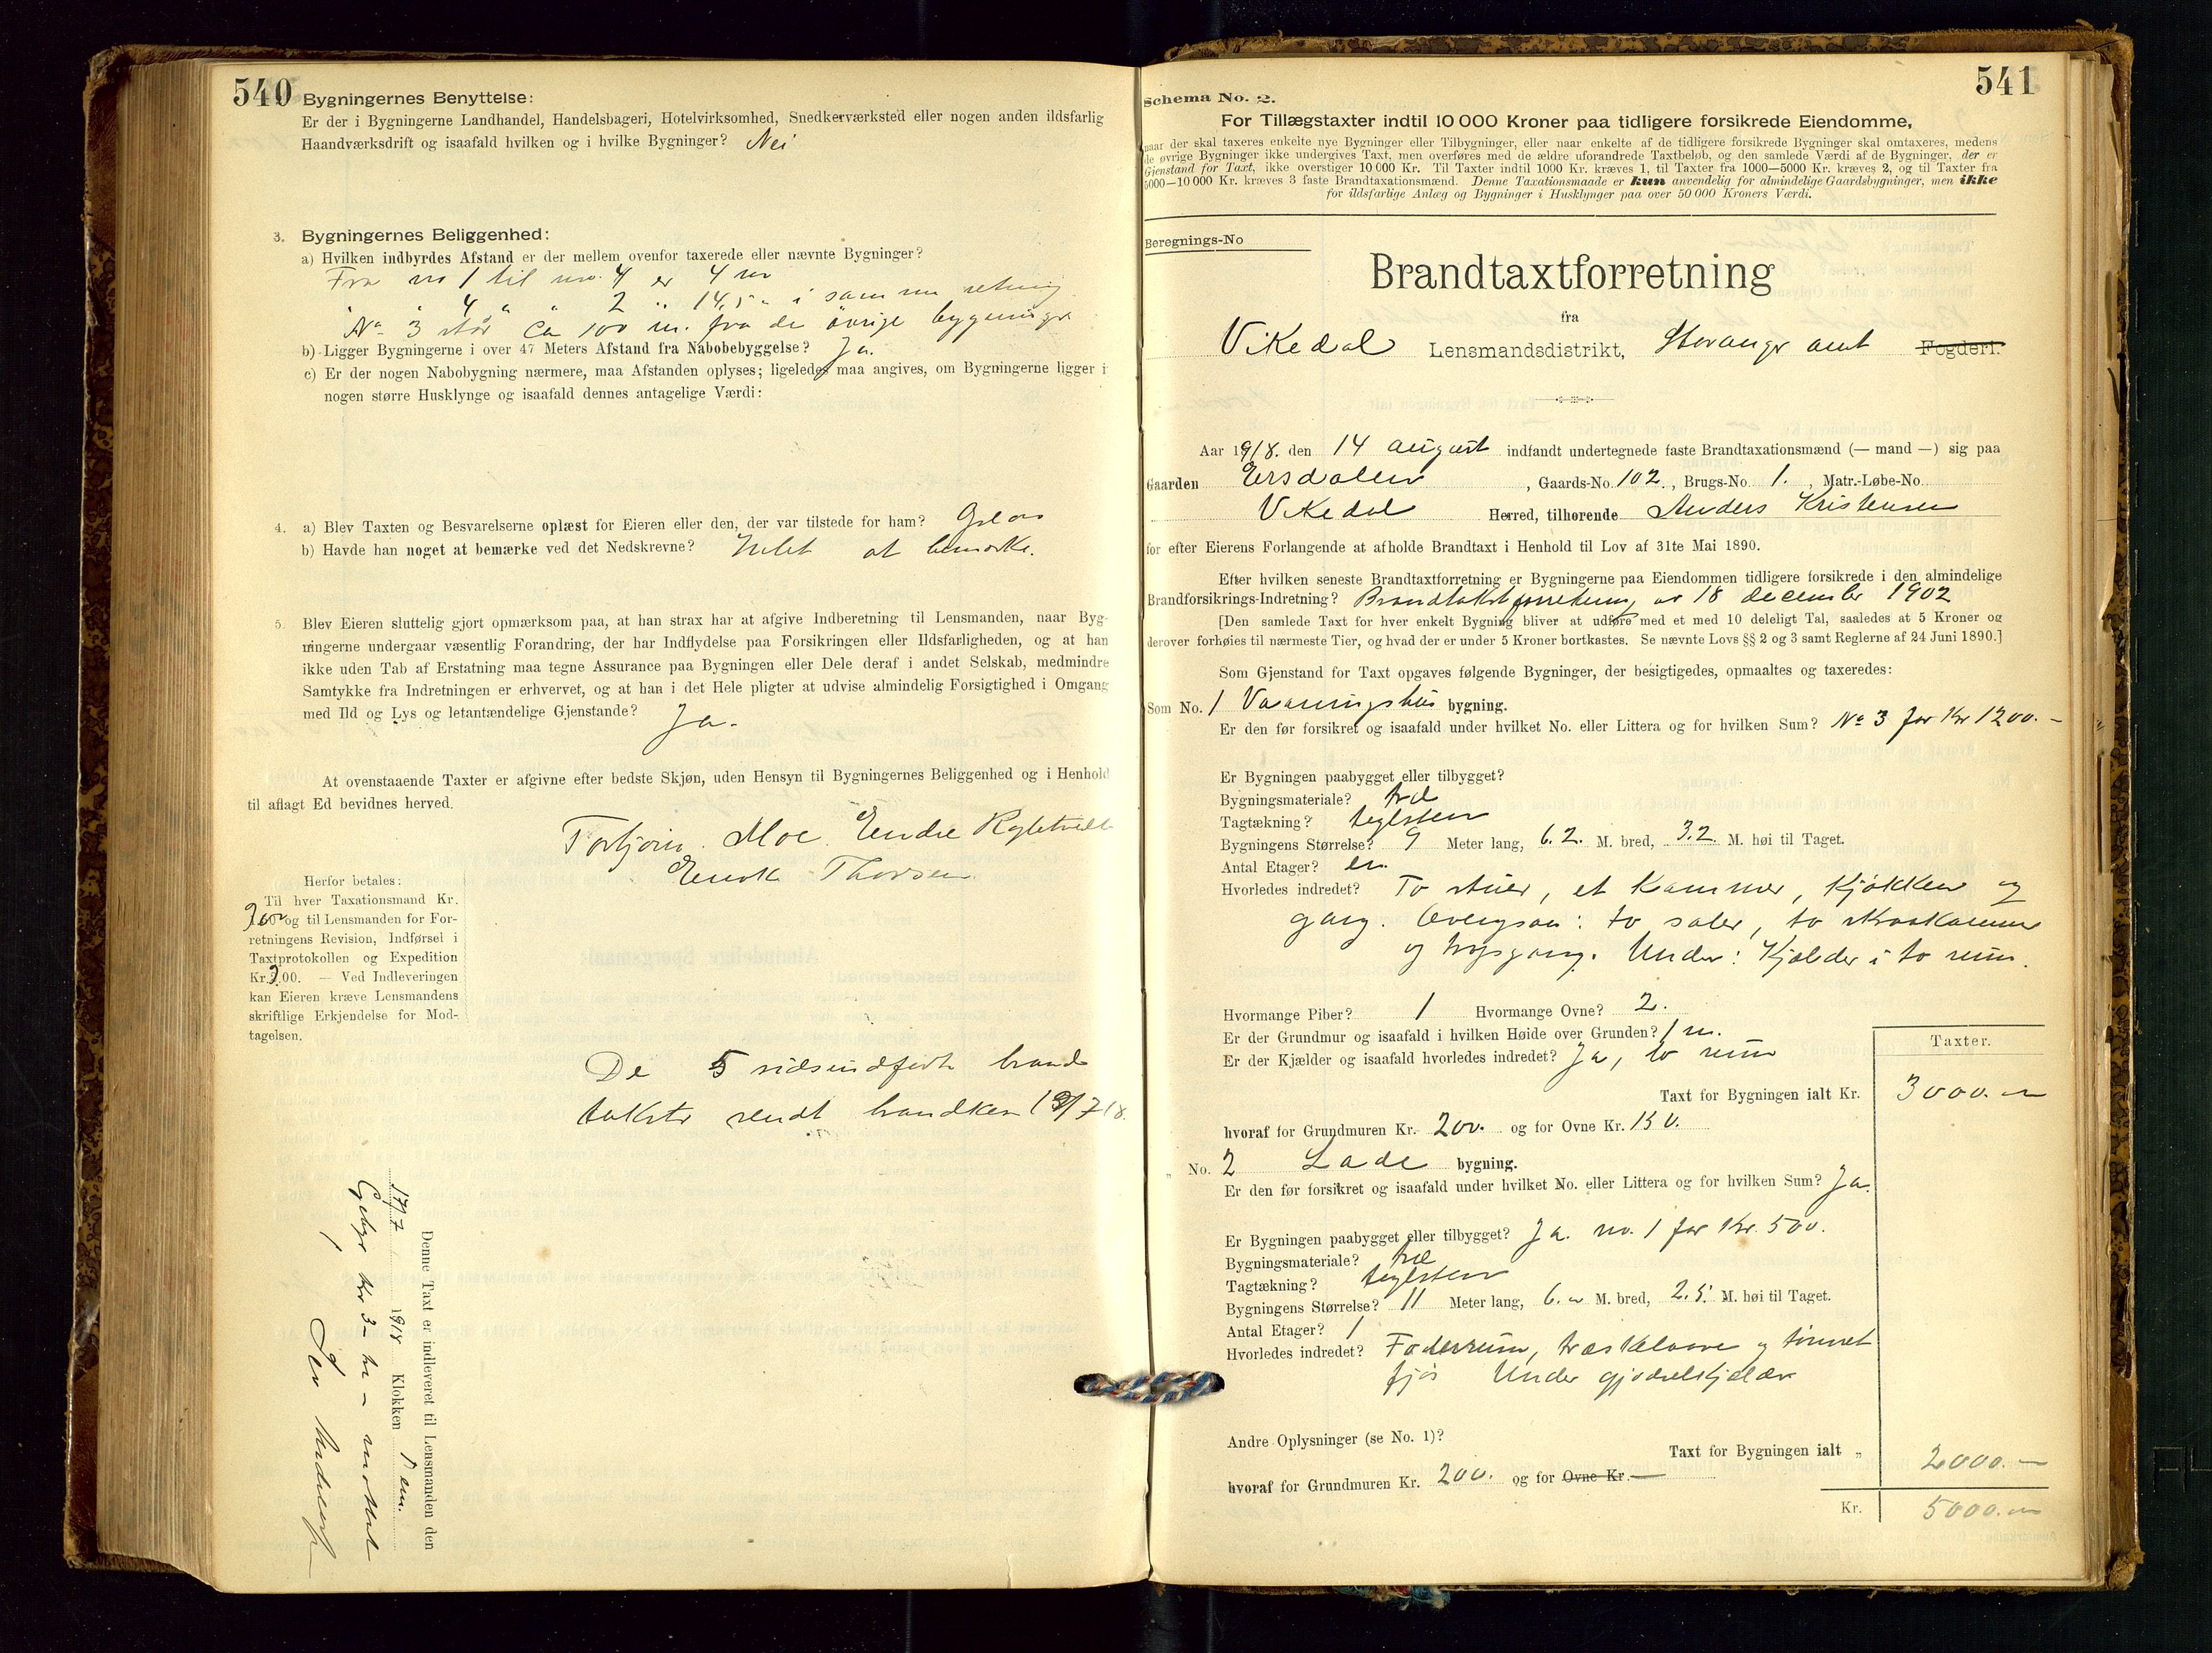 540
Bygningernes Benyttelse:
Er der i Bygningerne Landhandel, Handelsbageri, Hotelvirksomhed, Snedkerværksted eller nogen anden ildsfarlig
Haandværksdrift og isaafald hvilken og i hvilke Bygninger? Nei
3. Bygningernes Beliggenhed:
a) Hvilken indbyrdes Afstand er der mellem ovenfor taxerede eller nævnte Bygninger?
Fra no 1 til no. 4 er 4 m
" " 4 " " 2 " 14,5 " i samme retning
No 3 står ca 100 m. fra de övrige bygninger
b) Ligger Bygningerne i over 47 Meters Afstand fra Nabobebyggelse? Ja.
c) Er der nogen Nabobygning nærmere, maa Afstanden oplyses; ligeledes maa angives, om Bygningerne ligger i
nogen større Husklynge og isaafald dennes antagelige Værdi:
4. a) Blev Taxten og Besvarelserne oplæst for Eieren eller den, der var tilstede for ham?
b) Havde han noget at bemærke ved det Nedskrevne? Intet at bemærke.
5. Blev Eieren sluttelig gjort opmærksom paa, at han strax har at afgive Indberetning til Lensmanden, naar Byg-
ningerne undergaar væsentlig Forandring, der har Indflydelse paa Forsikringen eller Ildsfarligheden, og at han
ikke uden Tab af Erstatning maa tegne Assurance paa Bygningen eller Dele deraf i andet Selskab, medmindre
Samtykke fra Indretningen er erhvervet, og at han i det Hele pligter at udvise almindelig Forsigtighed i Omgang
med Ild og Lys og letantændelige Gjenstande? Ja.
At ovenstaaende Taxter er afgivne efter bedste Skjøn, uden Hensyn til Bygningernes Beliggenhed og i Henhold
til aflagt Ed bevidnes herved.
Torbjørn Moe. Endre
Enok Thorsen
Herfor betales:
Til hver Taxationsmand Kr.
og til Lensmanden for For-
retningens Revision, Indførsel i
Taxtprotokollen og Expedition
Kr. 3.00. — Ved Indleveringen
kan Eieren kræve Lensmandens
skriftlige Erkjendelse for Mod-
tagelsen.
De 5 sidsindførte brand
takster sendt brandkassen 19/7 18.
Denne Taxt er indleveret til Lensmanden den
17/7 1918 Klokken 1 em.
Gebyr kr 3 - tre - mottat
541
Schema No. 2.
For Tillægstaxter indtil 10 000 Kroner paa tidligere forsikrede Eiendomme,
naar der skal taxeres enkelte nye Bygninger eller Tilbygninger, eller naar enkelte af de tidligere forsikrede Bygninger skal omtaxeres, medens
de øvrige Bygninger ikke undergives Taxt, men overføres med de ældre uforandrede Taxtbeløb, og den samlede Værdi af de Bygninger, der er
Gjenstand for Taxt, ikke overstiger 10 000 Kr. Til Taxter indtil 1000 Kr. kræves 1, til Taxter fra 1000—5000 Kr. kræves 2, og til Taxter fra
5000—10 000 Kr. kræves 3 faste Brandtaxationsmænd. Denne Taxationsmaade er kun anvendelig for almindelige Gaardsbygninger, men ikke
for ildsfarlige Anlæg og Bygninger i Husklynger paa over 50 000 Kroners Værdi.
Beregnings-No
Brandtaxtforretning
fra
Vikedal Lensmandsdistrikt, Stavanger amt Fogderi.
Aar 1918. den 14 august indfandt undertegnede faste Brandtaxationsmænd (— mand —) sig paa
Gaarden Ersdalen, Gaards-No. 102, Brugs-No 1., Matr.-Løbe-No.
Vikedal Herred, tilhørende Anders Kristensen
for efter Eierens Forlangende at afholde Brandtaxt i Henhold til Lov af 31te Mai 1890.
Efter hvilken seneste Brandtaxtforretning er Bygningerne paa Eiendommen tidligere forsikrede i den almindelige
Brandforsikrings-Indretning? Brandtakstforretning av 18 december 1902
[Den samlede Taxt for hver enkelt Bygning bliver at udføre med et med 10 deleligt Tal, saaledes at 5 Kroner og
derover forhøies til nærmeste Tier, og hvad der er under 5 Kroner bortkastes. Se nævnte Lovs §§ 2 og 3 samt Reglerne af 24 Juni 1890.]
Som Gjenstand for Taxt opgaves følgende Bygninger, der besigtigedes, opmaaltes og taxeredes:
Som No. 1 Vaaningshus bygning.
Er den før forsikret og isaafald under hvilket No. eller Littera og for hvilken Sum? No 3 for Kr 1200. -
Er Bygningen paabygget eller tilbygget?
Bygningsmateriale? træ
Tagtækning? teglsten
Bygningens Størrelse? 9 Meter lang, 6.2. M. bred, 3.2 M. høi til Taget.
Antal Etager? en
Hvorledes indredet? To stuer, et kammer, kjøkken og
gang. Ovenpaa: to saler, to skraakammer
og trapgang. Under: Kjælder i to rum.
Hvormange Piber? 1 Hvormange Ovne? 2.
Er der Grundmur og isaafald i hvilken Høide over Grunden? 1 m.
Er der Kjælder og isaafald hvorledes indredet? Ja, to rum
Taxter.
Taxt for Bygningen ialt Kr. 3000. -
hvoraf for Grundmuren Kr. 200. og for Ovne Kr. 150.
" No. 2 Lade bygning.
Er den før forsikret og isaafald under hvilket No. eller Littera og for hvilken Sum? Ja.
Er Bygningen paabygget eller tilbygget? Ja. no. 1 for Kr. 500.
Bygningsmateriale? træ
Tagtækning? teglsten
Bygningens Størrelse? 11 Meter lang, 6. - M. bred, 2.5 M. høi til Taget.
Antal Etager? 1
Hvorledes indredet? Foderrum, træskelaave og tømret
fjøs Under gjødselskjælder
Andre Oplysninger (se No. 1)?
Taxt for Bygningen ialt " 2000. -
hvoraf for Grundmuren Kr. 200. og for Ovne Kr. —
Kr. 5000. -